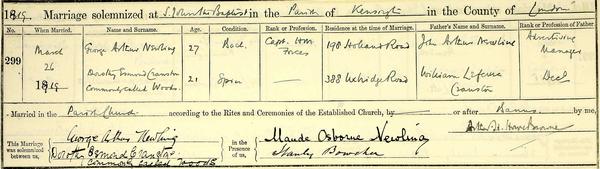 1819. Marriage solemnized at S. John the Baptist in the Parish of Kensington in the County of London
No. When Married. Name and Surname. Age. Condition. Rank or Profession. Residence at the time of Marriage. Father's Name and Surname. Rank or Profession of Father.
299 March 26 1919 George Arthur Newling 27 Bach. Capt. H.M. Forces 198 Holland Road John Arthur Newling Advertising Manager
Dorothy Esmond Cranston commonly called Woods. 21 Spin — 388 Uxbridge Road William Cranston Decd
Married in the Parish Church according to the Rites and Ceremonies of the Established Church, by — or after Banns by me,
This Marriage was solemnized between us, George Arthur Newling in the Presence of us, Maude Osborne Newling
Dorothy Esmond Cranston commonly called Woods Stanley Bowcher